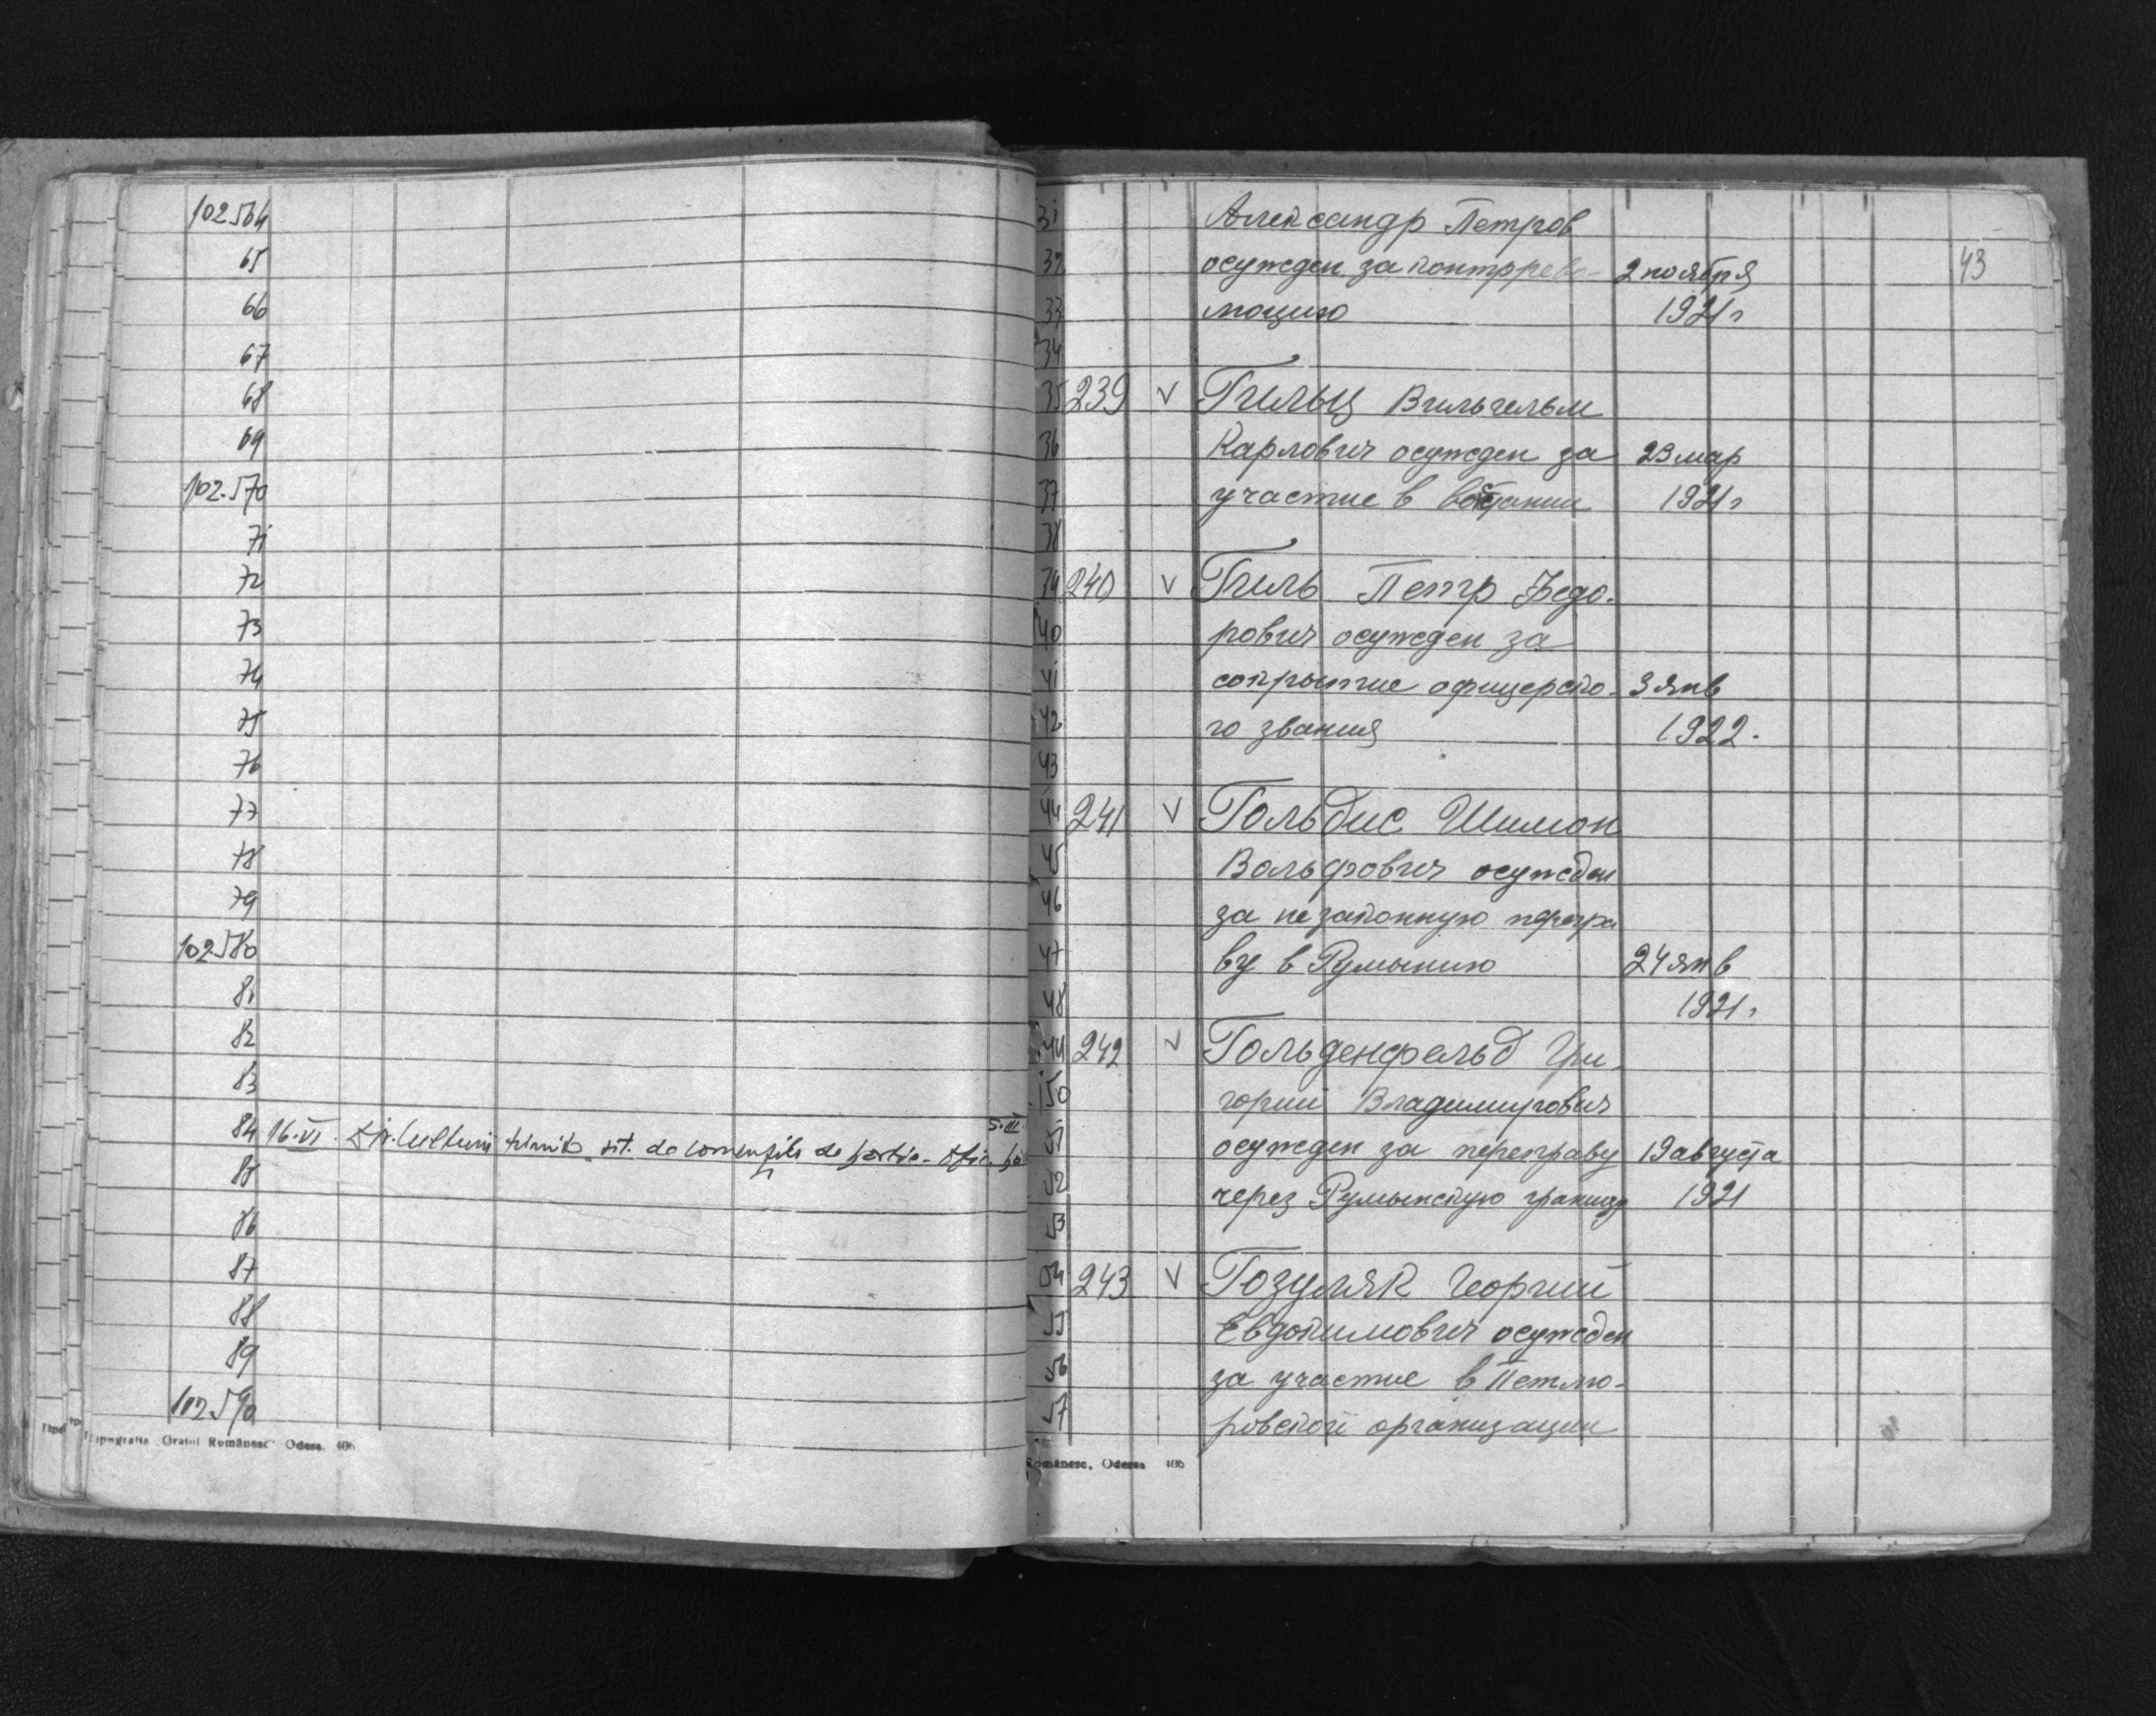 102564
65
66
67
68
69
102.570
71
72
73
74
75
76
77
78
79
102580
81
82
83
84 16.VI. Dir. Culturii trimite sit. de
85
86
87
88
89
102590
Tipografia „Graiul Românesc" Odesa. 406
43
31 Александр Петров
32 осужден за контррево- 2 ноября
33 люцию 1921 г
34
35 239 V Гильц Вильгельм
36 Карлович осужден за 23 мар
37 участие в востании 1921 г
38
39 240 V Гиль Петр Федо-
40 рович осужден за
41 сокрытие офицерско- 3 янв
42 го звания 1922.
43
44 241 V Гольдис Шимон
45 Вольфович осужден
46 за незаконную перепра
47 ву в Румынию 24 янв
48 1921 г
49 242 V Гольденфельд Гри-
150 горий Владимирович
51 осужден за переправу 19 августа
52 через Румынскую границу 1921
53
54 243 V Гозуляк Георгий
55 Евдокимович осужден
56 за участие в Петлю-
57 ровской организации
Românesc, Odessa 406